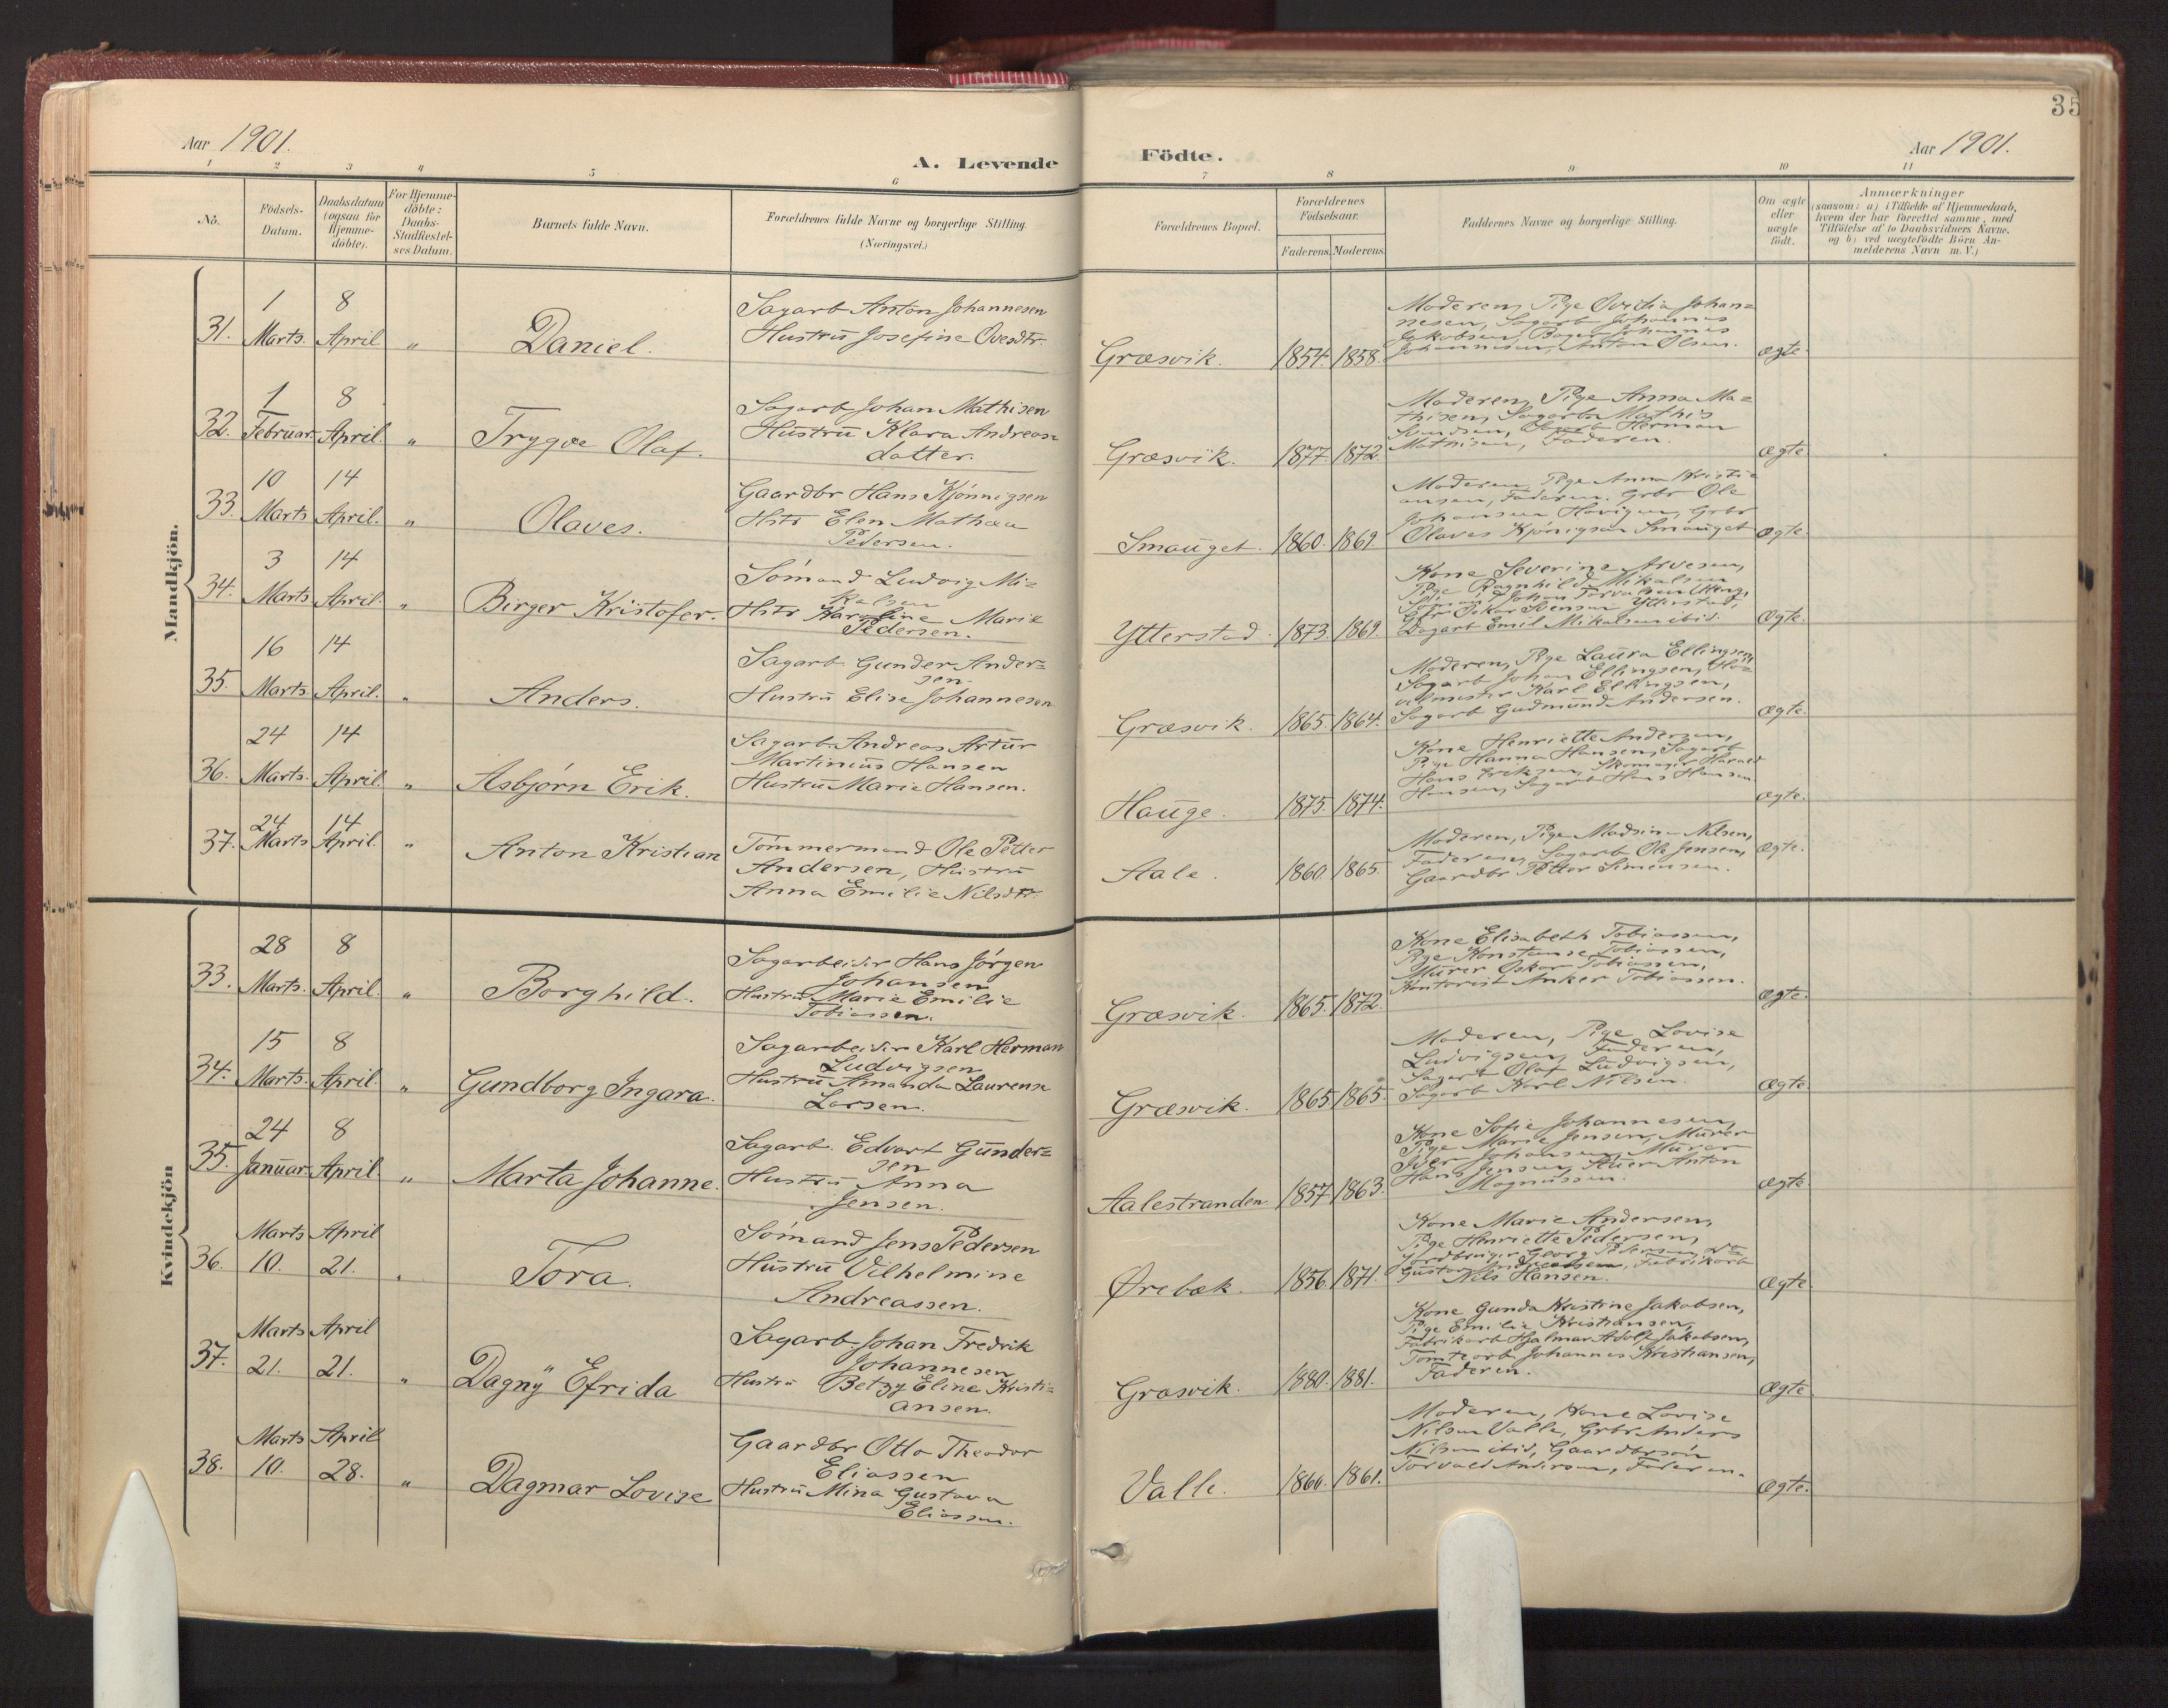 35
Aar 1901.
A. Levende
Födte.
Aar 1901.
1 2 3 4 5 6 7 8 9 10 11
No.
Födsels-
Datum.
Daabsdatum
(ogsaa for
Hjemme-
döbte).
For Hjemme-
döbte:
Daabs-
Stadfæstel-
ses Datum.
Barnets fulde Navn.
Forældrenes fulde Navne og borgerlige Stilling.
(Næringsvei.)
Forældrenes Bopæl.
Forældrenes
Födselsaar.
Faderens. Moderens.
Faddernes Navne og borgerlige Stilling.
Om ægte
eller
uægte
födt.
Anmærkninger
(saasom: a) i Tilfælde af Hjemmedaab,
hvem der har forrettet samme, med
Tilföielse af to Daabsvidners Navne.
og b) ved uægtefödte Börn An-
melderens Navn m. V.)
Mandkjön.
31.
1
Marts.
8
April
"
Daniel.
Sagarb Anton Johannesen
Hustru Josefine Ovesdtr.
Græsvik.
1854. 1858.
Moderen, Pige Ovidia Johan=
nesen, Sagarb Johannes
Jakobsen, Bager Johannes
Johannesen, Anton Olsen.
ægte.
32.
1
Februar.
8
April.
"
Trygve Olaf.
Sagarb Johan Mathisen
Hustru Klara Andreas=
datter.
Græsvik.
1877. 1872.
Moderen, Pige Anna Ma=
thisen, Sagarb Mathis
Svendsen, Herman
Mathisen, Faderen.
ægte
33.
10
Marts
14
April.
"
Olaves.
Gaardbr Hans Kjönnigsen
Hstr Elen Mathea
Pedersen.
Smauget.
1860. 1869
Moderen, Pige Anna Kristi=
ansen, Faderen, Grbr Ole
Johansen Havigen, Grbr
Olaves Kjönigsen Smauget
ægte.
34.
3
Marts
14
April.
"
Birger Kristofer.
Sömand Ludvig Mi=
kalsen
Hstr Karoline Marie
Pedersen.
Ytterstad.
1873. 1869.
Kone Severine Arvesen,
Pige Ragnhild Mikalsen
Sömand Johan Torvalsen Uteng,
Gbr Oskar Svensen Ytterstad,
Dagarb Emil Mikalsen ibid.
Ægte.
35.
16
Marts
14
April.
"
Anders.
Sagarb. Gunder Ander=
sen.
Hustru Elise Johannesen
Græsvik.
1865. 1864.
Moderen, Pige Laura Ellingsen,
Sagarb Johan Ellingsen, Hö=
velmester Karl Ellingsen,
Sagarb Gudmund Andersen.
ægte.
36.
24
Marts.
14
April.
"
Asbjørn Erik.
Sagarb. Andreas Artur
Martinius Hansen
Hustru Marie Hansen.
Hauge.
1875. 1874.
Kone Henriette Andersen,
Pige Hanna Hansen, Sagarb
Hans Eriksen, Skomager Harald
Hansen, Sagarb Hans Hansen
ægte.
37.
24
Marts
14
April.
"
Anton Kristian
Tömmermand Ole Petter
Andersen, Hustru
Anna Emilie Nilsdtr.
Aale.
1860. 1865.
Moderen, Pige Madsine Nilsen,
Faderen, Sagarb Ole Jensen,
Gaardbr Petter Simensen.
Ægte.
Kvindekjön
33.
28
Marts.
8
April.
"
Borghild.
Sagarbeider Hans Jörgen
Johansen
Hustru Marie Emilie
Tobiassen.
Græsvik.
1865. 1872.
Kone Elisabeth Tobiassen,
Pige Konstanse Tobiassen,
Murer Oskar Tobiassen,
Kontorist Anker Tobiassen.
ægte.
34.
15
Marts.
8
April.
"
Gundborg Ingara.
Sagarbeider Karl Herman
Ludvigsen
Hustru Amanda Laurense
Larsen.
Græsvik.
1865 1865.
Moderen, Pige Lovise
Ludvigsen, Faderen,
Sagarb Olaf Ludvigsen,
Sagarb Karl Nilsen.
ægte.
35.
24
Januar.
8
April
"
Marta Johanne.
Sagarb. Edvart Gunder=
sen
Hustru Anna
Jensen.
Aalestranden.
1857. 1863.
Kone Sofie Johannesen,
Pige Marie Jensen, Murer
Iver Johansen, Murer
Hans Jensen, Stuer Anton
Magnussen.
ægte
36.
Marts
10.
April
21.
"
Tora.
Sömand Jens Pedersen
Hustru Vilhelmine
Andreassen.
Ørebæk.
1856. 1871.
Kone Marie Andersen,
Pige Henriette Pedersen,
Jordbruger Georg Petersen, do
Gustav Andreassen, Fabrikarb
Nils Hansen.
Ægte
37.
Marts
21.
April
21.
"
Dagny Efrida
Sagarb. Johan Fredrik
Johannesen
Hustru Betzy Eline Kristi=
ansen.
Græsvik.
1880. 1881.
Kone Gunda Kristine Jakobsen,
Pige Emilie Kristiansen,
Fabrikarb Hjalmar Adolf Jakobsen,
Tomtearb Johannes Kristiansen,
Faderen.
Ægte
38.
Marts
10.
April
28.
"
Dagmar Lovise
Gaardbr Otto Theodor
Eliassen
Hustru Mina Gustava
Eliassen.
Valle.
1860. 1861.
Moderen, Kone Lovise
Nilsen Valle, Grbr Anders
Nilsen ibid, Gaardbrsön
Torvald Andersen, Faderen.
Ægte.